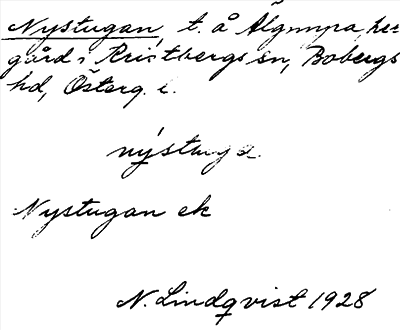 Nystugan, t. å Älgumpa, her
gård i Kristbergs sn, Bobergs
hd, Österg. l.
nýstuga.
Nystugan ek
N. Lindqvist 1928